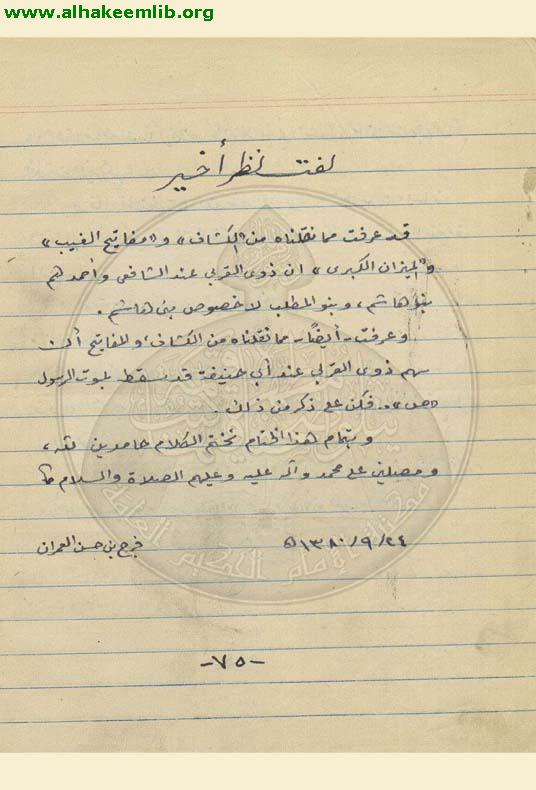 www.alhakeemlib.org
لفت نظر أخير
قد عرفت مما نقلناه من «الكشاف» و«مفاتيح الغيب»
و«الميزان الكبرى» ان ذوي القربى عند الشافعي وأحمد هم
بنو هاشم، وبنو المطلب لا خصوص بني هاشم.
وعرفت - أيضاً - مما نقلناه من الكشاف، والمفاتيح أن
سهم ذوي القربى عند أبي حنيفة قد سقط بموت الرسول
«ص». فكن على ذكر من ذلك.
وبتمام هذا الختام نختم الكلام حامدين لله،
ومصلين على محمد وآله عليه وعليهم الصلاة والسلام
٢٤/٩/١٣٨٠ه فرج بن حسن العمران
-٧٥-